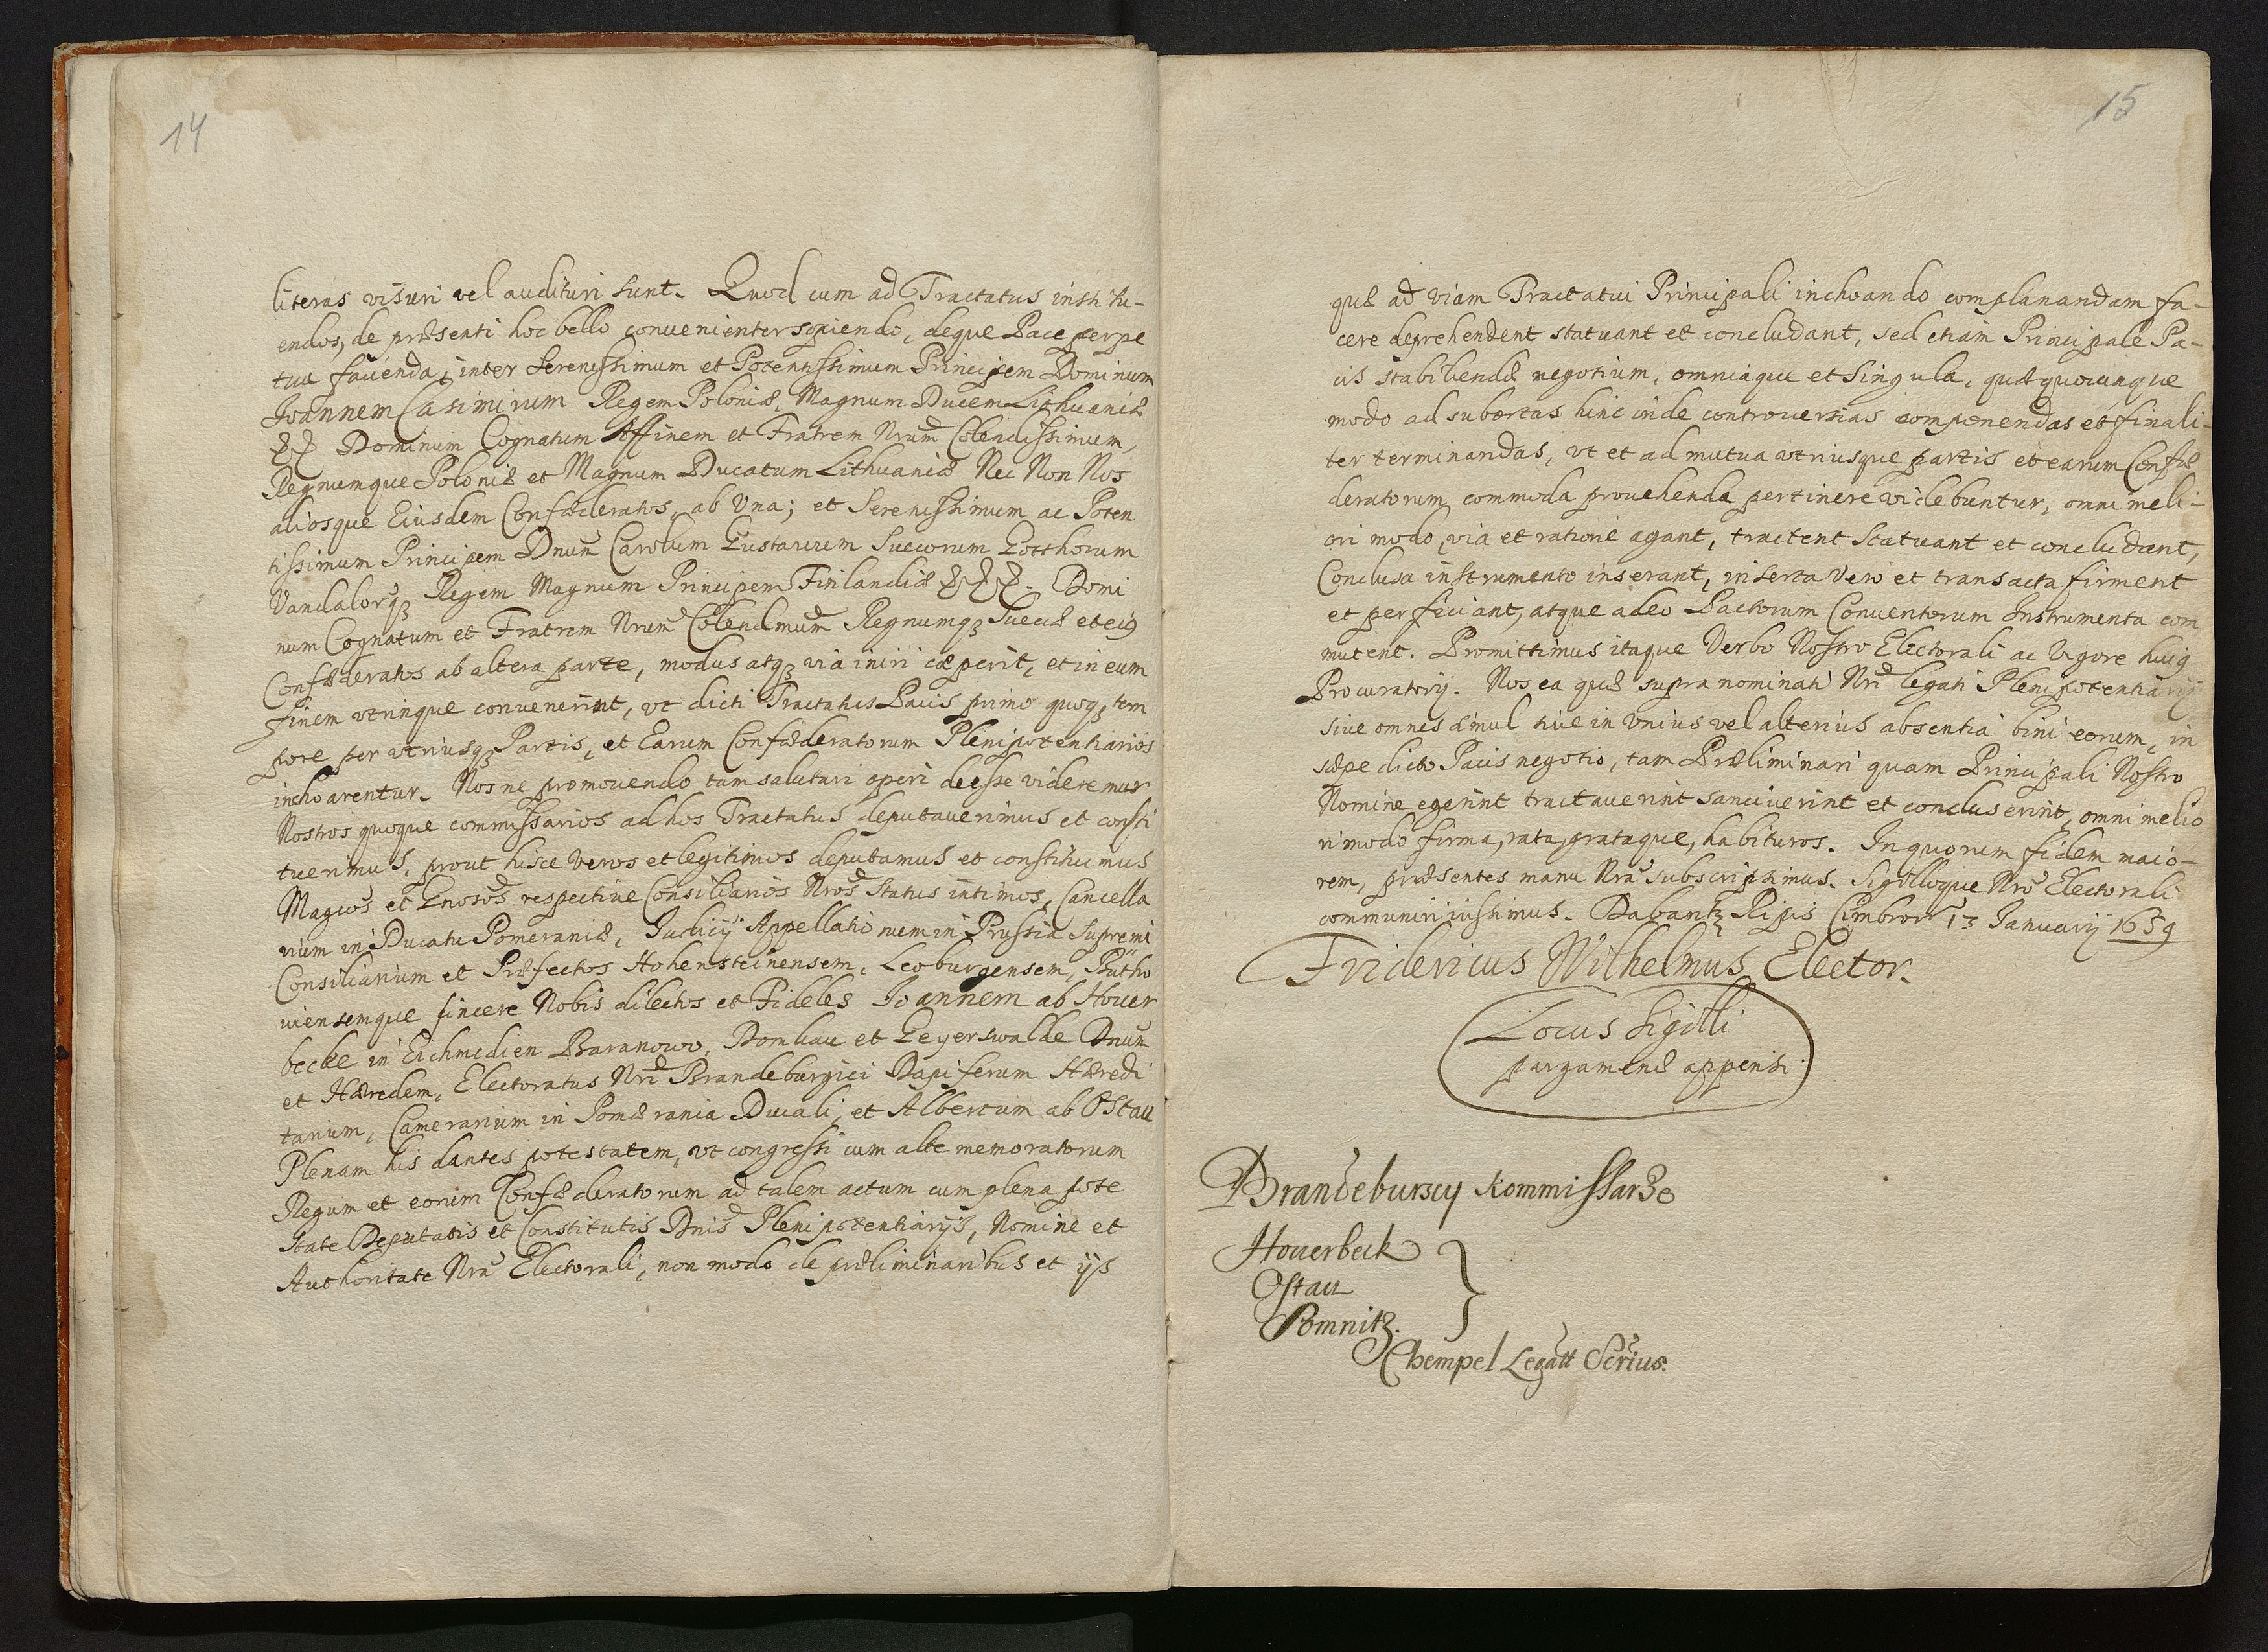 14
literas visuri vel audituri sunt. Quod cum ad Tractatus institu-
endos, de præsenti hoc bello convenienter sopiendo, deque Pace perpe
tua facienda, inter Serenissimum et Potentissimum Principem Dominum
Joannem Casimirum Regem Poloniæ, Magnum Ducem Lithuaniæ
&& Dominum Cognatum Affinem et Fratrem Nrum Colendissimum,
Regnumque Poloniæ et Magnum Ducatum Lithuaniæ Nec Non Nos
aliosque Eiusdem Confæderatos, ab Vna; et Serenissimum ac Poten
tissimum Principem Dnum Carolum Gustavum Suecorum Gotthorum
Vandalorqꝫ Regem Magnum Principem Finlandiæ &&&. Domi
num Cognatum et Fratrem Nrum Colendmum Regnumqꝫ Sueciæ et eiꝯ
Confæderatos ab altera parte, modus atqꝫ via iniri cæperit, et in eum
finem vtrinque convenerint, vt dicti Tractatus Pacis primo quoqꝫ tem
pore per vtriusqꝫ Partis, et Earum Confæderatorum Plenipotentiarios
inchoarentur. Nos ne promovendo tam salutari operi deesse videremur
Nostros quoque commissarios ad hos Tractatus deputauerimus et consti
tuerimus, prout hisce Veros et legitimos deputamus et constituimus
Magcos et Gnosos respective Consiliarios Nros Status intimos, Cancella
rium in Ducatu Pomeraniæ, Judicij Appellationum in Prussia Supremi
Consiliarium et Præfectos Hohensteinensem, Leoburgensem, Bütho
viensemque sincere Nobis dilectos et Fideles Joannem ab Hover
becke in Eichmedien Baranowo, Domkau et Geyerswalde Dnum
et Hæredem, Electoratus Nri Brandeburgici Dapiferum Hæredi
tarium, Camerarium in Pomærania Ducali, et Albertum ab Ostau
Plenam his dantes potestatem, vt congressi cum alte memoratorum
Regum et eorum Confæderatorum ad talem actum cum plena pote
state Deputatis et Constitutis Dnis Plenipotentiarijs, Nomine et
Authoritate Nra Electorali, non modo de præliminaribus et ijs
15
quæ ad viam Tractatui Principali inchoando complanandam fa-
cere deprehendent statuant et concludant, sed etiam Principale Pa-
cis stabiliendæ negotium, omniaque et singula, quæ quocunque
modo ad subortas hinc inde controversias componendas et finali-
ter terminandas, vt et ad mutua vtriusque partis et earum Confæ
deratorum commoda provehenda pertinere videbuntur, omni meli-
ori modo, via et ratione agant, tractent Statuant et concludant,
Conclusa instrumento inserant, inserta Vero et transacta firment
et perficiant, atque adeo Pactorum Conventorum Instrumenta com
mutent. Promittimus itaque Verbo Nostro Electorali ac Vigore huiꝯ
Procuratorij. Nos ea quæ supra nominati Nri legati Plenipotentiarij
sive omnes simul sive in Vnius vel alterius absentia bini eorum, in
sæpe dicto Pacis negotio, tam Præliminari quam Principali Nostro
Nomine egerint tractaverint sanciverint et concluserint, omni melio
ri modo firma, rata, grataque, habituros. In quorum fidem maio-
rem, præsentes manu Nra subscripsimus. Sigilloque Nro Electorali
communiri iussimus. Dabantꝫ Ripis Cimbror 13 Januarij 1659
Fridericus Wilhelmus Elector.
Locus Sigilli
pargamenæ appensi.
Brandeburscy Kommissarze
Houerbeck
Ostau
Somnitz.
Chempel Legatt Secrius.